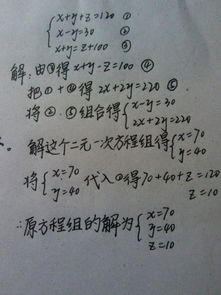 x+y+z=120 ①
x-y=30 ②
x+y=z+100 ③
解:由③得x+y-z=100 ④
把①+④得2x+2y=220 ⑤
将②.⑤组合得{x-y=30
2x+2y=220
解这个二元一次方程组得{x=70
y=40
将{x=70
y=40 代入①得70+40+z=120
z=10
∴原方程组的解为{x=70
y=40
z=10